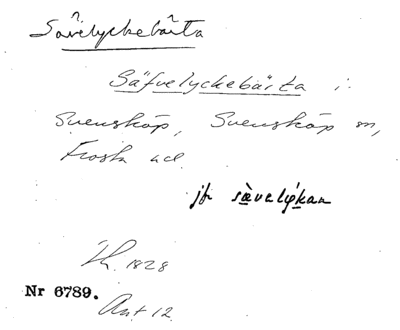 Sävelyckebärta
Säfvelyckebärta i:
Svensköp, Svensköp sn,
Frosta hd.
jfr sàvelýkan
1828
Nr 6789.
Ant 12